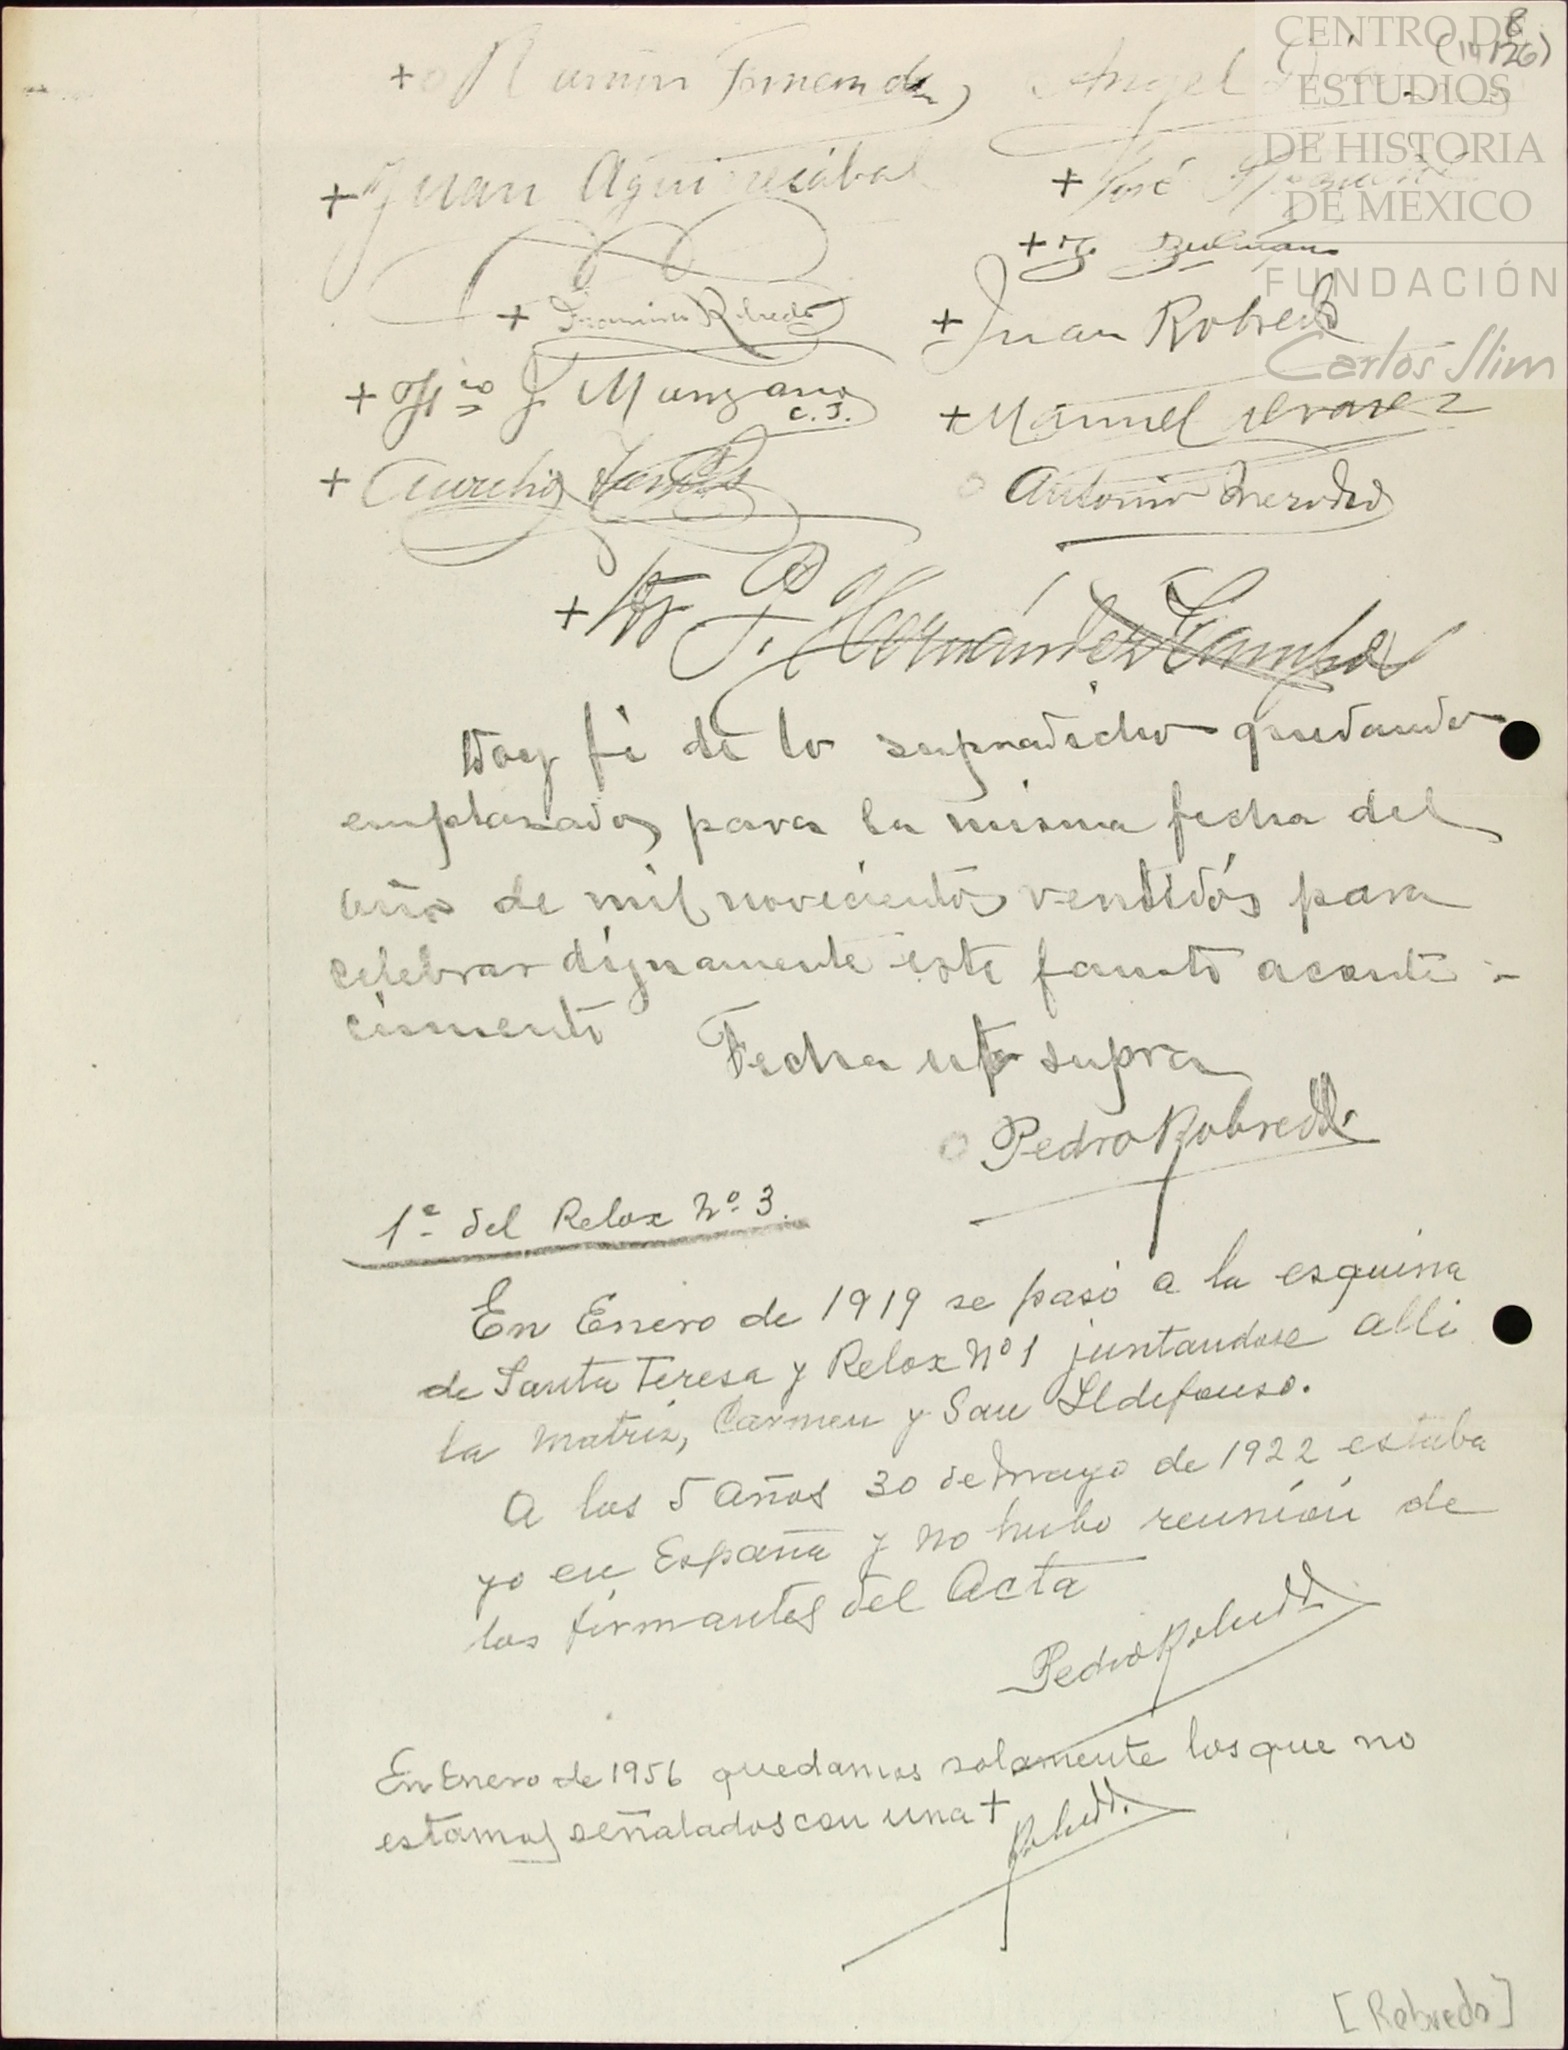 8
CENTRO DE
ESTUDIOS
DE HISTORIA
DE MÉXICO
FUNDACIÓN
Carlos Slim
+ Ramón Fernandez Angel
+ Juan Aguirrezábal
+ José
+
+ Francisco Robredo
+ Juan Robredo
+ J. Manzano
C. J.
+ Manuel Alvarez
+ Aurelio
Antonio
+ P. Hernández
Doy fé de lo supradicho quedando
emplazados para la misma fecha del
año de mil novecientos ventidós para
celebrar dignamente este fausto aconte-
cimiento
Fecha ut supra
Pedro Robredo
1ª del Relox Nº 3.
En Enero de 1919 se pasó a la esquina
de Santa Teresa y Relox Nº 1 juntandose alli
la matriz, Carmen y San Ildefonso.
A los 5 años 30 de mayo de 1922 estaba
yo en España y no hubo reunión de
los firmantes del Acta
Pedro Robredo
En Enero de 1956 quedamos solamente los que no
estamos señalados con una +
Robredo
[Robredo]